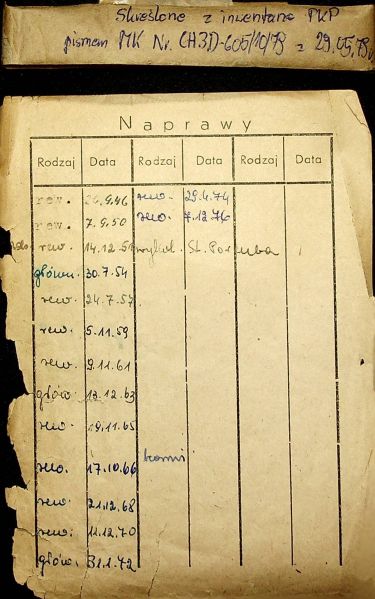 Skreślono z inwentarza PKP
pismem MK Nr. CH3D-605/10/79 z 29.05.79r
Naprawy
Rodzaj Data Rodzaj Data Rodzaj Data
rew. 26.9.46 rew. 29.4.74
rew. 7.9.50 rew. 7.12.76
rew. 14.12.51 wykol. St. Poręba
główn. 30.7.54
rew. 24.7.57
rew. 5.11.59
rew. 9.11.61
głów. 13.12.63
rew. 19.11.65
rew. 17.10.66
rew. 21.12.68
rew. 11.12.70
głów. 31.1.72